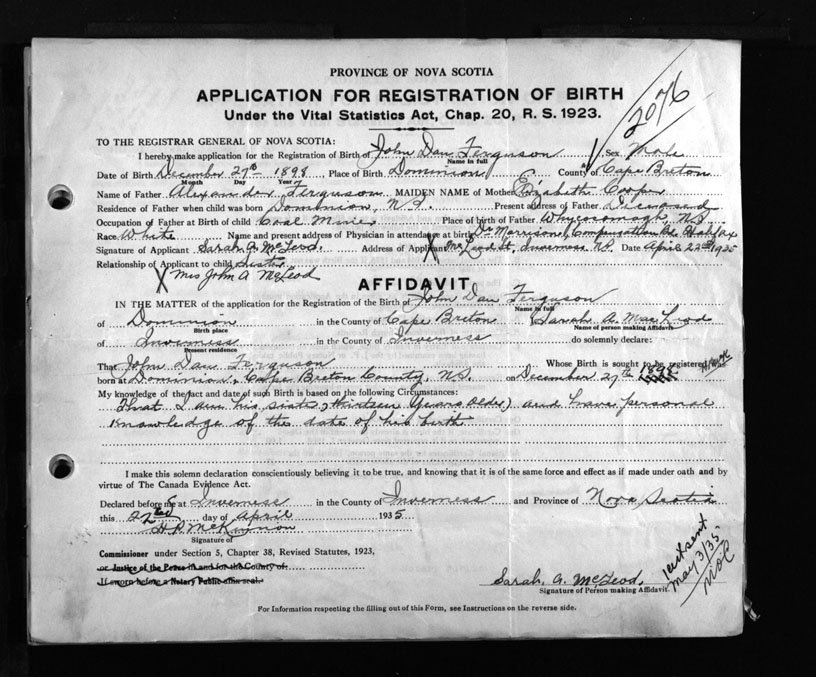 PROVINCE OF NOVA SCOTIA
APPLICATION FOR REGISTRATION OF BIRTH
Under the Vital Statistics Act, Chap. 20, R. S. 1923.
2076
TO THE REGISTRAR GENERAL OF NOVA SCOTIA:
I hereby make application for the Registration of Birth of John Dan Ferguson Sex Male
Name in full
Date of Birth December 27th 1898 Place of Birth Dominion County of Cape Breton
Month Day Year
Name of Father Alexander Ferguson MAIDEN NAME of Mother Elizabeth Cooper
Residence of Father when child was born Dominion, N.S. Present address of Father Deceased
Occupation of Father at Birth of child Coal Miner Place of birth of Father Whycocomagh, N.S.
Race White Name and present address of Physician in attendance at birth Dr Morrison, Compensation Bd. Halifax
Signature of Applicant Sarah A. McLeod. Address of Applicant McLeod St, Inverness N.S. Date April 22nd 1935
Relationship of Applicant to child Sister
X Mrs John A McLeod
AFFIDAVIT
IN THE MATTER of the application for the Registration of the Birth of John Dan Ferguson
Name in full
of Dominion in the County of Cape Breton Sarah A. MacLeod
Birth place Name of person making Affidavit
of Inverness in the County of Inverness do solemnly declare:
Present residence
That John Dan Ferguson Whose Birth is sought to be registered was
born at Dominion, Cape Breton County, N.S. on December 27th 1898
My knowledge of the fact and date of such Birth is based on the following Circumstances:
That I am his sister, thirteen years older, and have personal
knowledge of the date of his birth
I make this solemn declaration conscientiously believing it to be true, and knowing that it is of the same force and effect as if made under oath and by
virtue of The Canada Evidence Act.
Declared before me at Inverness in the County of Inverness and Province of Nova Scotia
this 22nd day of April 1935
McKinnon
Signature of
Commissioner under Section 5, Chapter 38, Revised Statutes, 1923,
or Justice of the Peace in and for the County of
If sworn before a Notary Public affix seal.
Sarah. A. McLeod.
Signature of Person making Affidavit.
May 3/35
For Information respecting the filling out of this Form, see Instructions on the reverse side.